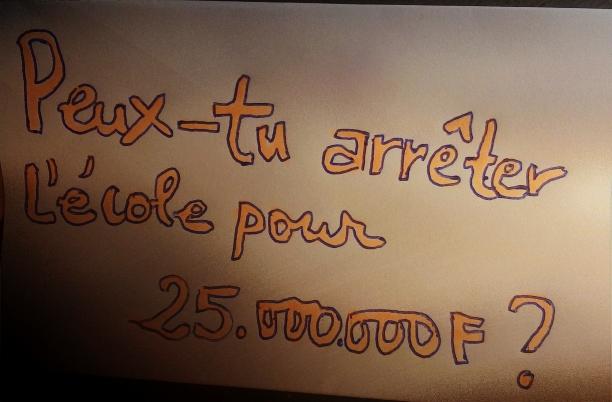 Peux-tu arrêter
L'école pour
25.000.000F ?